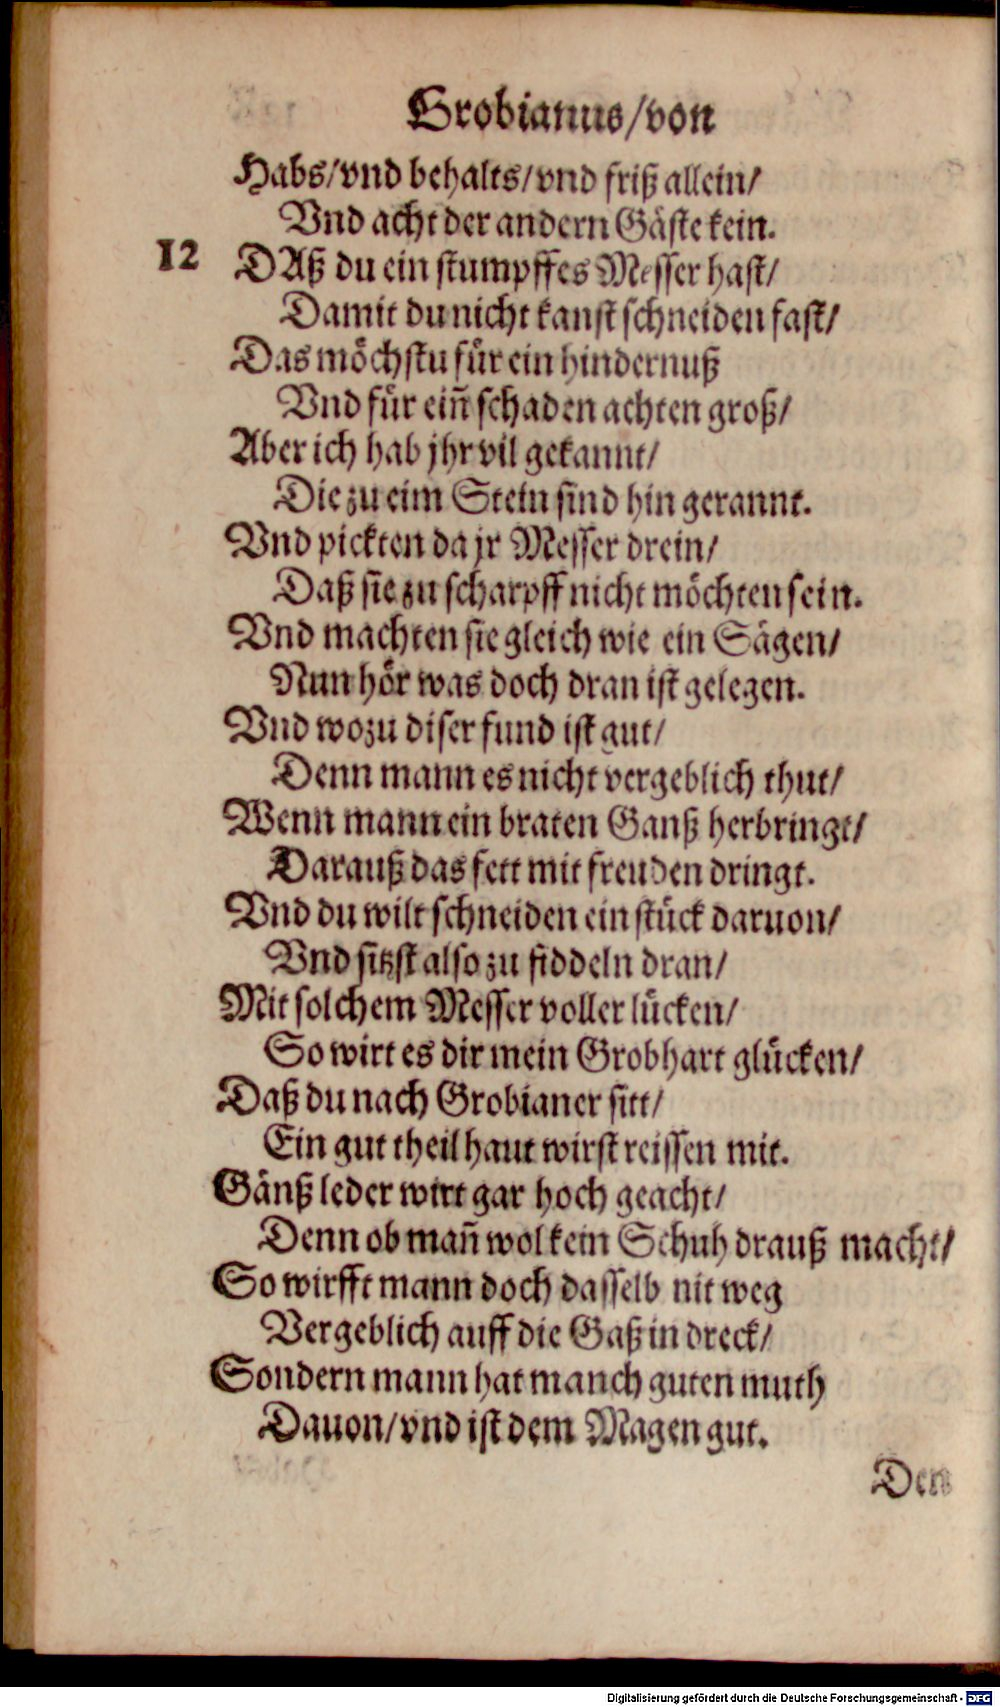 Grobianus/von
Habs/vnd behalts/vnd friß allein/
Vnd acht der andern Gäste kein.
12 DAß du ein stumpffes Messer hast/
Damit du nicht kanst schneiden fast/
Das möchstu für ein hindernuß
Vnd für eiñ schaden achten groß/
Aber ich hab jhr vil gekannt/
Die zu eim Stein sind hin gerannt.
Vnd pickten da jr Messer drein/
Daß sie zu scharpff nicht möchten sein.
Vnd machten sie gleich wie ein Sägen/
Nun hör was doch dran ist gelegen.
Vnd wozu diser fund ist gut/
Denn mann es nicht vergeblich thut/
Wenn mann ein braten Ganß herbringt/
Darauß das fett mit freuden dringt.
Vnd du wilt schneiden ein stück daruon/
Vnd sitzst also zu fiddeln dran/
Mit solchem Messer voller lücken/
So wirt es dir mein Grobhart glücken/
Daß du nach Grobianer sitt/
Ein gut theil haut wirst reissen mit.
Gänß leder wirt gar hoch geacht/
Denn ob mañ wol kein Schuh drauß macht/
So wirfft mann doch dasselb nit weg
Vergeblich auff die Gaß in dreck/
Sondern mann hat manch guten muth
Dauon/vnd ist dem Magen gut.
Den
Digitalisierung gefördert durch die Deutsche Forschungsgemeinschaft - DFG